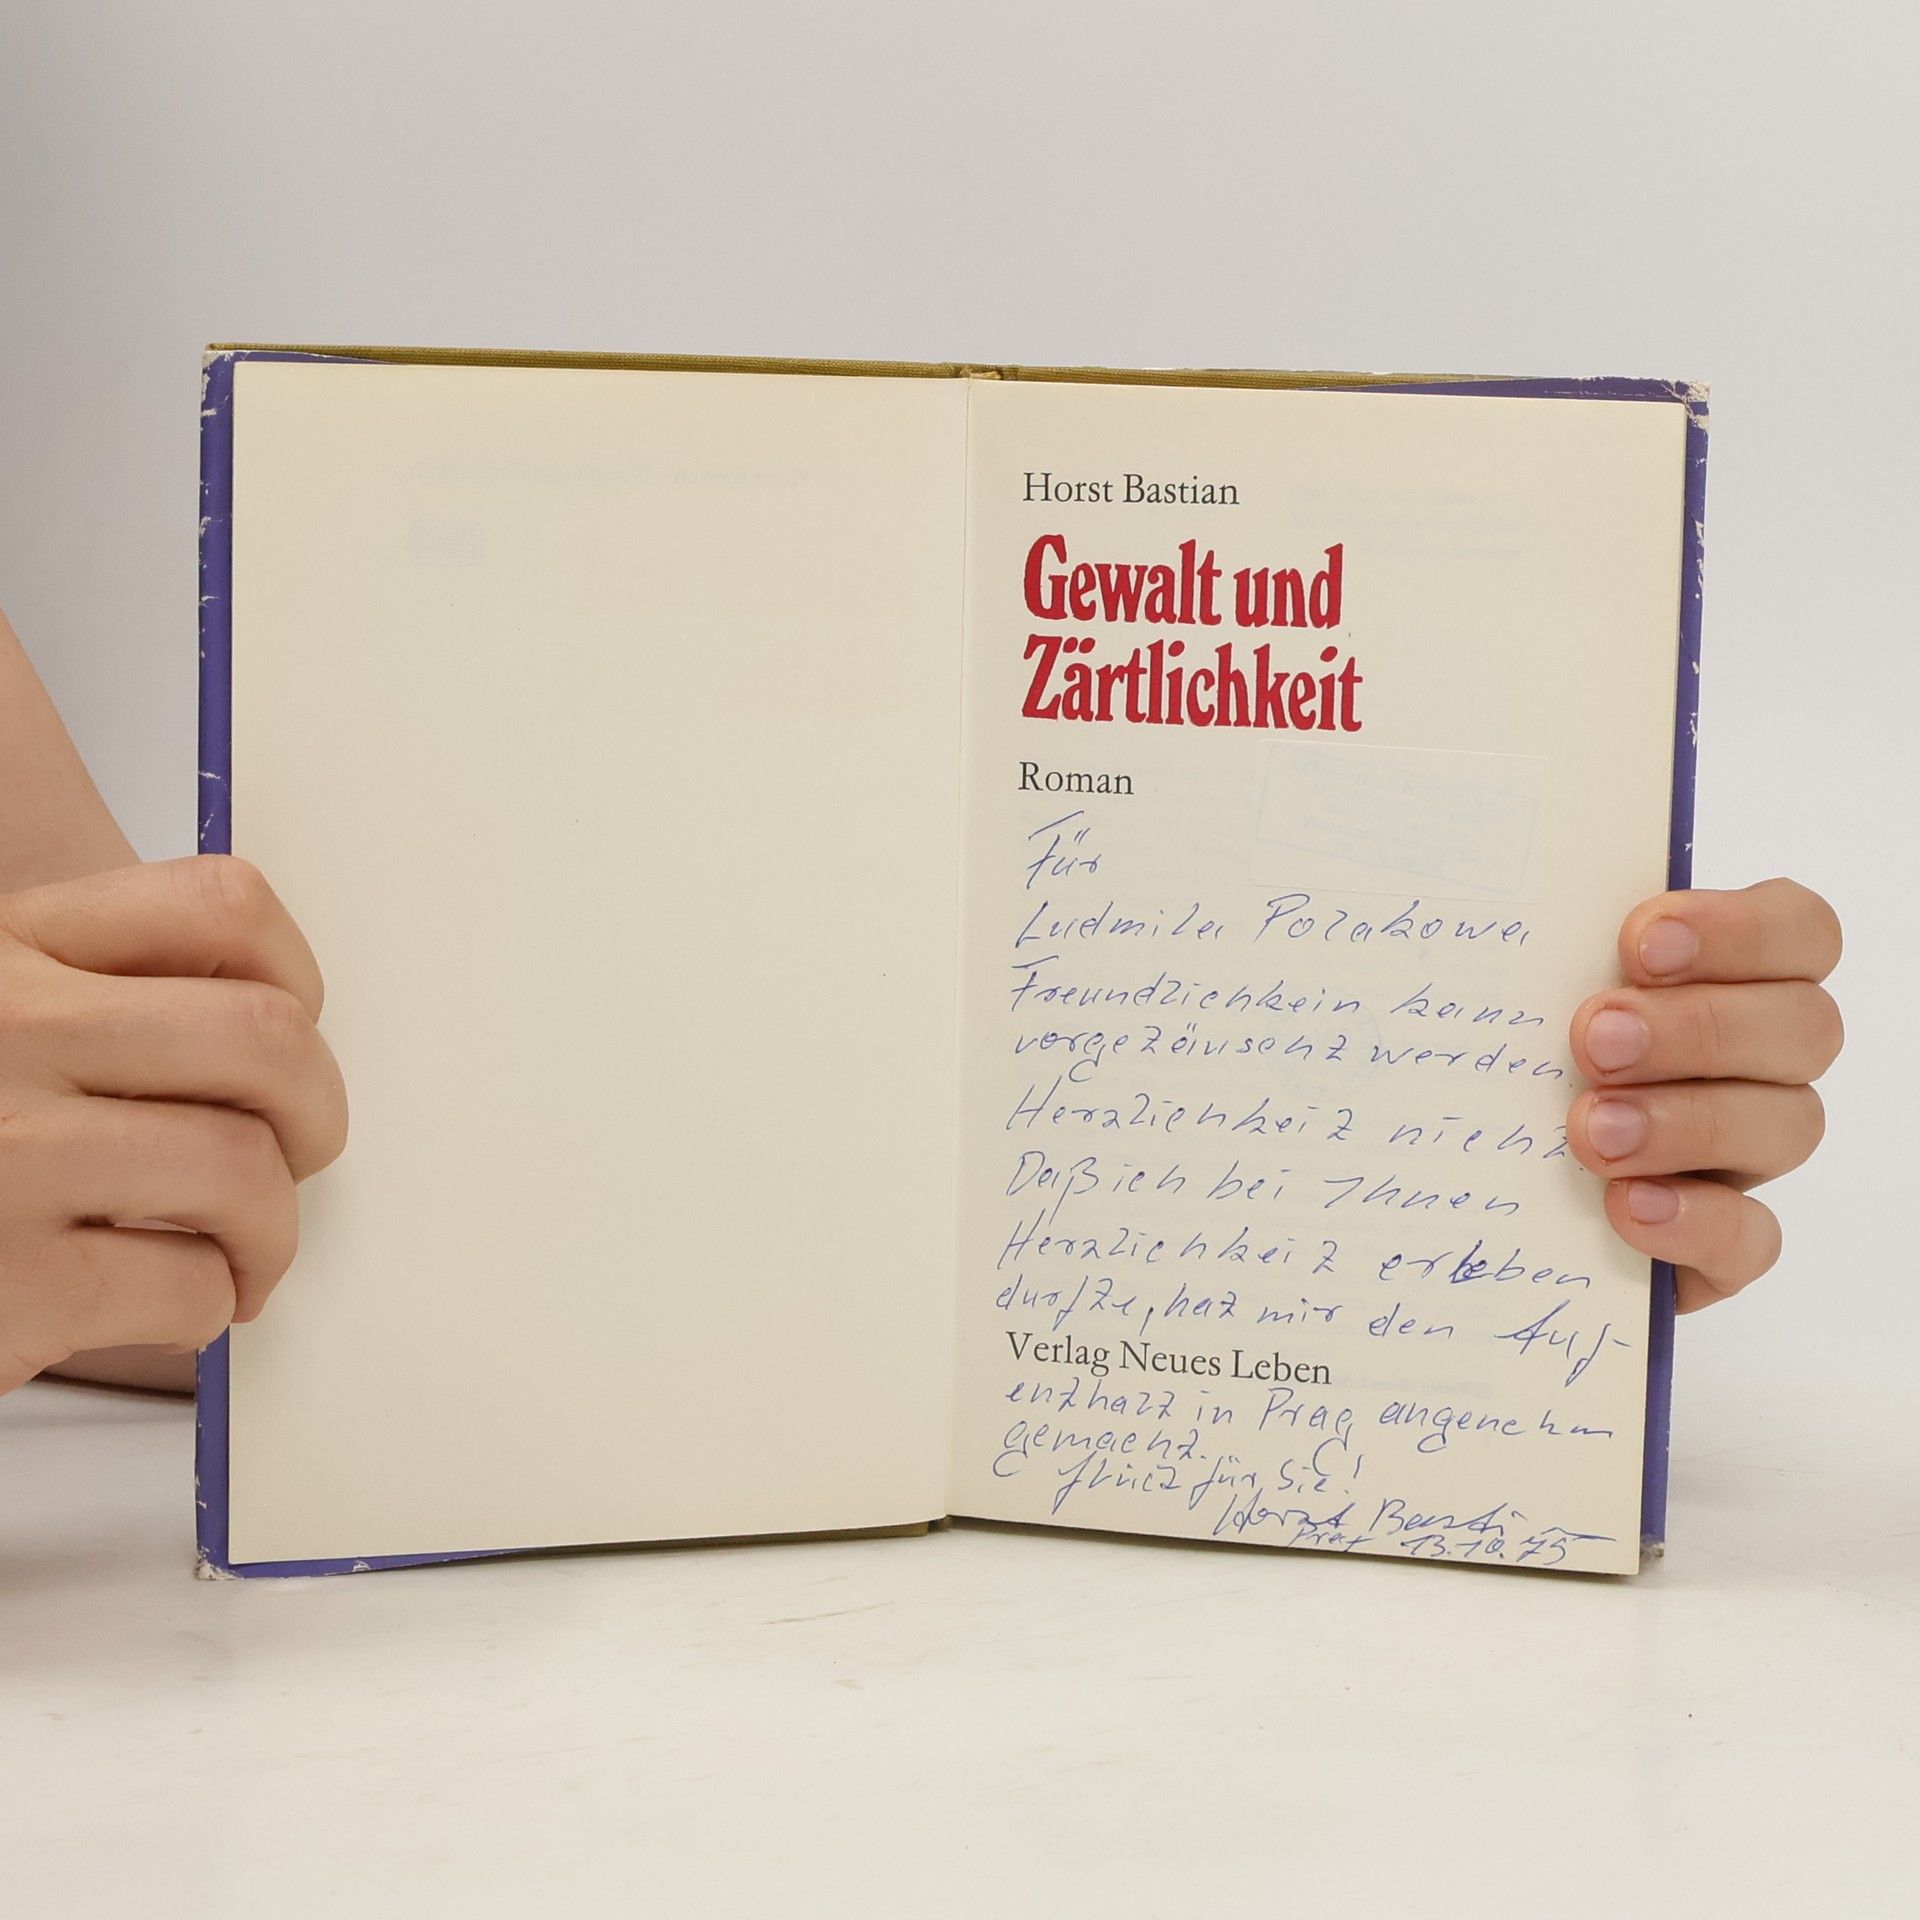 Horst Bastian
Gewalt und
Zärtlichkeit
Roman
Für
Ludmila Polakowa
Freundlichkein kann
vorgetäuscht werden
Herzlichkeit nicht.
Daß ich bei Ihnen
Herzlichkeit erleben
durfte, hat mir den Auf-
Verlag Neues Leben
enthalt in Prag angenehm
gemacht.
Glück für Sie!
Horst Bastian
Prag 13.10.75